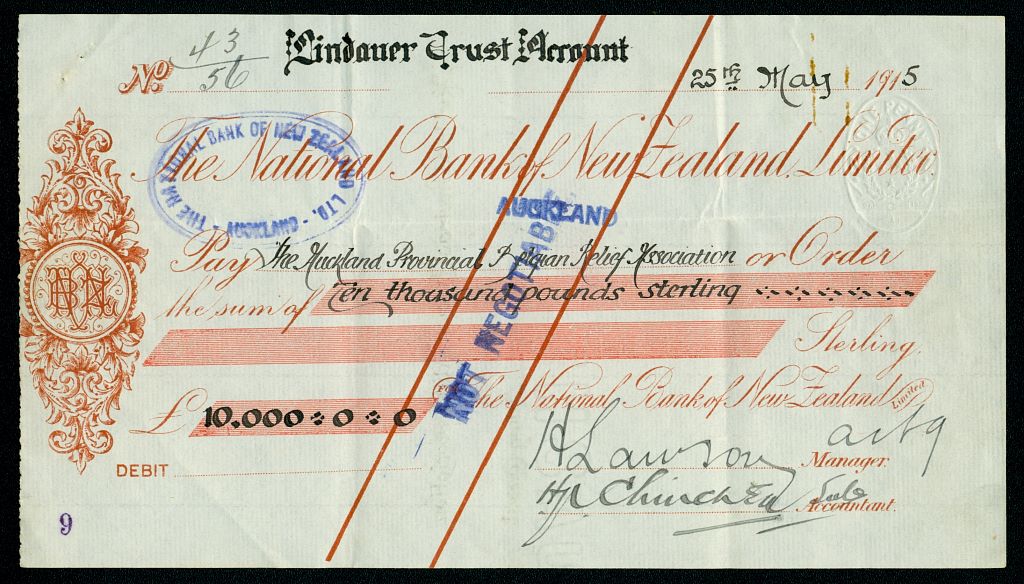 Lindauer Trust Account
No 43/56
25th May 1915
THE NATIONAL BANK OF NEW ZEALAND LTD. - AUCKLAND -
The National Bank of New Zealand, Limited.
AUCKLAND
NOT NEGOTIABLE
Pay The Auckland Provincial Belgian Relief Association or Order
the sum of Ten thousand pounds sterling
Sterling.
£ 10.000 : 0 : 0
For The National Bank of New Zealand Limited
H Lawson actg
Manager.
DEBIT
Sub
Accountant.
9